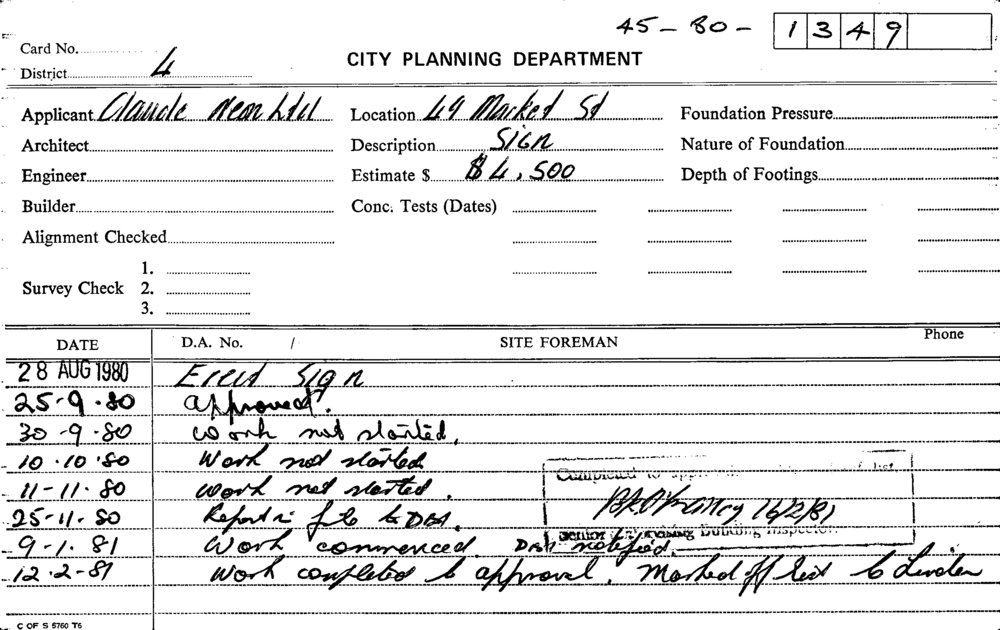 45-80- 1349
Card No.
District 4
CITY PLANNING DEPARTMENT
Applicant Claude Neon Ltd Location 49 Market St Foundation Pressure
Architect Description Sign Nature of Foundation
Engineer Estimate $ $4,500 Depth of Footings
Builder Conc. Tests (Dates)
Alignment Checked
1.
Survey Check 2.
3.
DATE D.A. No. / SITE FOREMAN Phone
28 AUG 1980 Erect Sign
25-9-80 approved.
30-9-80 Work not started.
10.10.80 Work not started
11-11-80 work not started.
25-11-80 Report in file to DBA.
9-1.81 Work commenced. notified.
12.2-81 Work completed to approval. Marked off list to
Completed to
16/2/81
Senior Building Inspector.
C OF S 5760 T6